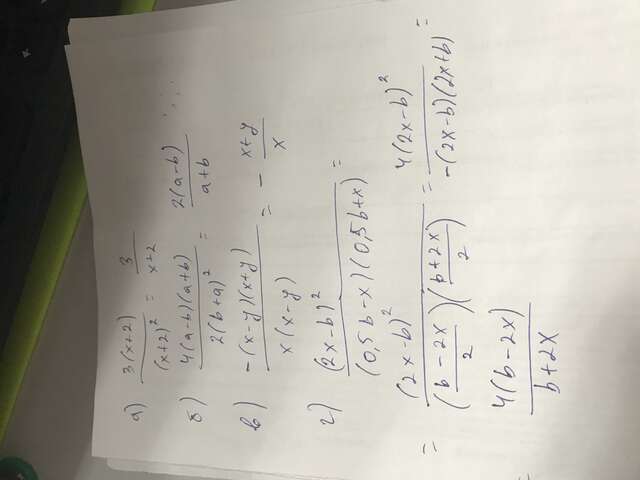 а) 3(x+2)/(x+2)² = 3/x+2
б) 4(a-b)(a+b)/2(b+a)² = 2(a-b)/a+b ;;;
в) -(x-y)(x+y)/x(x-y) = - x+y/x
г) (2x-b)²/(0,5b-x)(0,5b+x) =
= (2x-b)²/(b-2x/2)(b+2x/2) = 4(2x-b)²/-(2x-b)(2x+b) =
= 4(b-2x)/b+2x